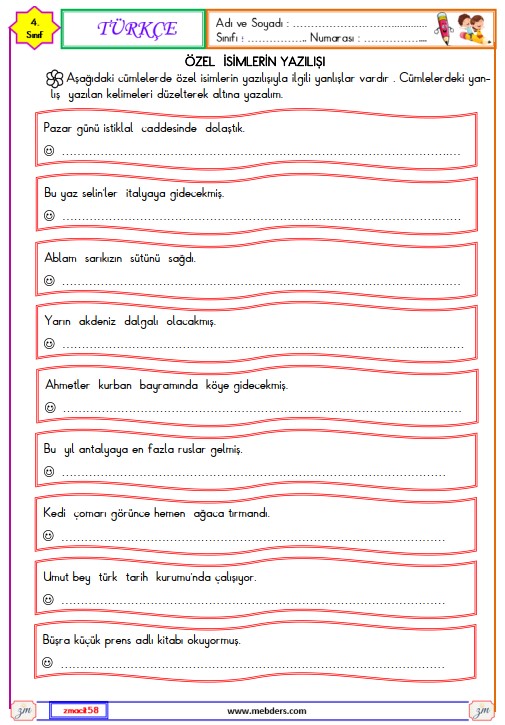 4.
Sınıf
TÜRKÇE
Adı ve Soyadı : ...............................................
Sınıfı : ................... Numarası : ...................
ÖZEL İSİMLERİN YAZILIŞI
Aşağıdaki cümlelerde özel isimlerin yazılışıyla ilgili yanlışlar vardır . Cümlelerdeki yan-
lış yazılan kelimeleri düzelterek altına yazalım.
Pazar günü istiklal caddesinde dolaştık.
Bu yaz selin'ler italyaya gidecekmiş.
Ablam sarıkızın sütünü sağdı.
Yarın akdeniz dalgalı olacakmış.
Ahmetler kurban bayramında köye gidecekmiş.
Bu yıl antalyaya en fazla ruslar gelmiş.
Kedi çomarı görünce hemen ağaca tırmandı.
Umut bey türk tarih kurumu'nda çalışıyor.
Büşra küçük prens adlı kitabı okuyormuş.
zm
zmacit58
www.mebders.com
zm